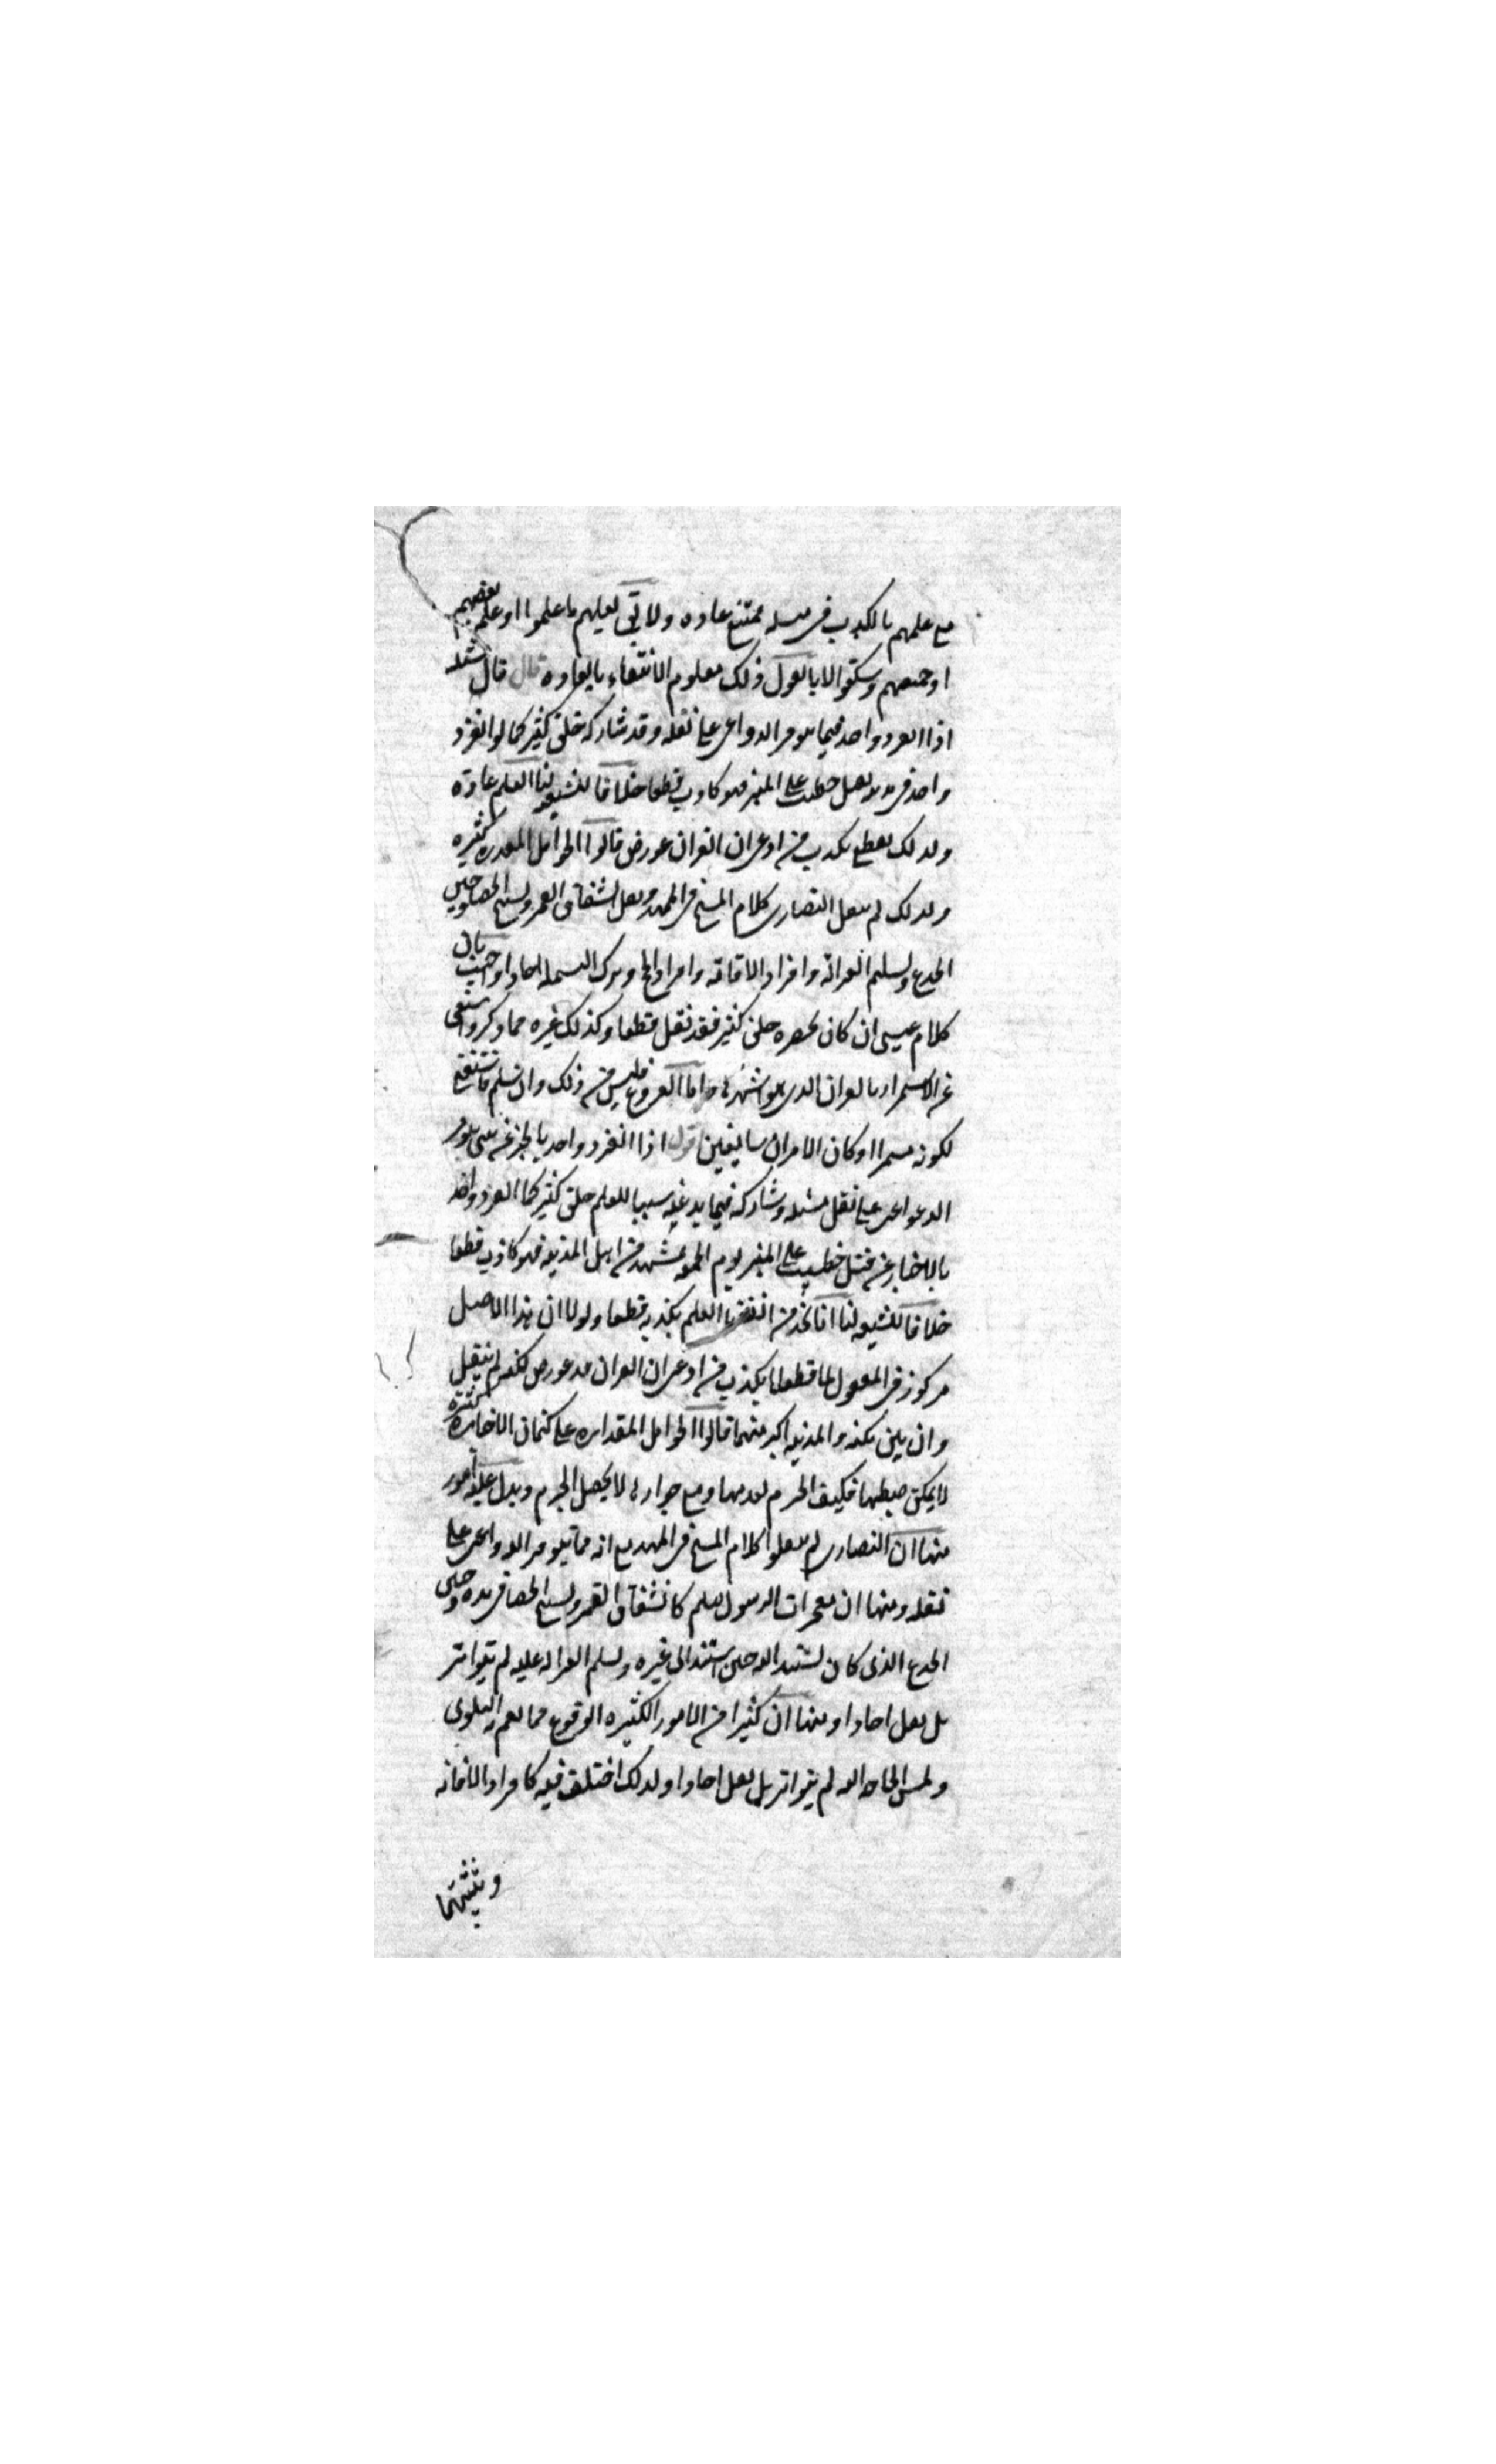 مع علمهم بالكذب فى مثله ممتنع عاده ولا تى لعلهم ما علموا او علم بعضهم
او جميعهم وسكتوا لانا نقول ذلك معلوم الانتفاء بالعاده قال قال مسئله
اذا انفرد واحد فيما يتوفر الدواعى على نقله وقد شاركه خلق كثير كما لو انفرد
واحد فى مدينه بقتل خطيب على المنبر فهو كاذب قطعا خلافا للشيعه لنا العلم عادة
ولذلك نقطع بكذب من ادعى ان القران عورض قالوا الحوامل المقدره كثيره
ولذلك لم ينقل النصارى كلام المسيح فى المهد ونقل انشقاق القمر وتسبيح الحصا وحنين
الجذع وتسليم الغزالة وافراد الاقامه وافراد الحج وترك البسمله احادا واجيب بان
كلام عيسى ان كان بحضره خلق كثير فقد نقل قطعا وكذلك غيره مما ذكر واستغنى
عن الاستمرار بالقران الذى هو اشهرها واما الفروع فليس من ذلك وان سلم فاستغنى
لكونه مستمرا او كان الامران سايغين اقول اذا انفرد واحد بالخبر عن شى يتوفر
الدواعى على نقل مثله وشاركه فيما يدعيه سببا للعلم خلق كثير كما انفرد واحد
بالاخبار عن قتل خطيب على المنبر يوم الجمعه بمشهد من اهل المدينه فهو كاذب قطعا
خلافا للشيعه لنا انا نجد من انفسنا العلم بكذبه قطعا ولولا ان هذا الاصل
مركوز فى العقول لما قطعنا بكذب من ادعى ان القران قد عورض لكنه لم ينقل
وان بين مكه والمدينه اكبر منهما قالوا الحوامل المقدره على كتمان الاخبار كثيرة
لا يمكن ضبطها فكيف الجزم بعدمها ومع جوازها لا يحصل الجزم ويدل عليه امور
منها ان النصارى لم ينقلوا كلام المسيح فى المهد مع انه مما يتوفر الدواعى على
نقله ومنها ان معجزات الرسول صلعم كانشقاق القمر وتسبيح الحصا فى يده وحنين
الجذع الذى كان يستند اليه حين استند الى غيره وتسليم الغزاله عليه لم يتواتر
بل نقل احادا ومنها ان كثيرا من الامور الكثيره الوقوع مما تعم به البلوى
وتمس الحاجه اليه لم يتواتر بل نقل احادا ولذلك اختلف فيه كافراد الاقامه
وتثنيتها